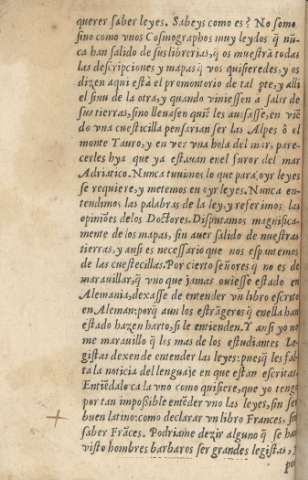 querer saber leyes. Sabeys como es? No somo
sino como vnos Cosmographos muy leydos q̃ nũ
ca han salido de sus librerias, q̃ os muestrã todas
las descripciones y mapas q̃ vos quisieredes, y os
dizen aqui està el promontorio de tal pte, y alli
el sinu de la otra, y quando viniessen a salir de
sus tierras, sino lleuasen quiẽ les auisasse, en viẽ
do vna cuestecilla pensarian ser las Alpes ò el
monte Tauro, y en ver vna bola del mar, pare-
cerles hya que ya estauan enel furor del mar
Adriatico. Nunca tuuimos lo que para oyr leyes
se requiere, y metemos en oyr leyes. Nunca en-
tendimos las palabras de la ley, y referimos las
opiniões delos Doctores. Disputamos magnifica-
mente de los mapas, sin auer salido de nuestras
tierras, y ansi es necessario que nos espantemos
de las cuestecillas. Por cierto señores q̃ no es de
marauillar, q̃ vno que jamas ouiesse estado en
Alemania, dexasse de entender vn libro escrito
en Aleman: porq̃ aun los estrãgeros q̃ enella han
estado hazen harto, si le entienden. Y ansi yo no
me marauillo q̃ les mas de los estudiantes Le
gistas dexen de entender las leyes: pues q̃ les fal
ta la noticia del lenguaje en que estan escritas
Entiẽdalo ca la vno como quisiere, que yo teng
por tan impoßible entẽder vno las leyes, sin ser
buen latino: como declarar vn libro Frances, sin
saber Frãces. Podriame dezir alguno q̃ se ha
visto hombres barbaros ser grandes legistas,